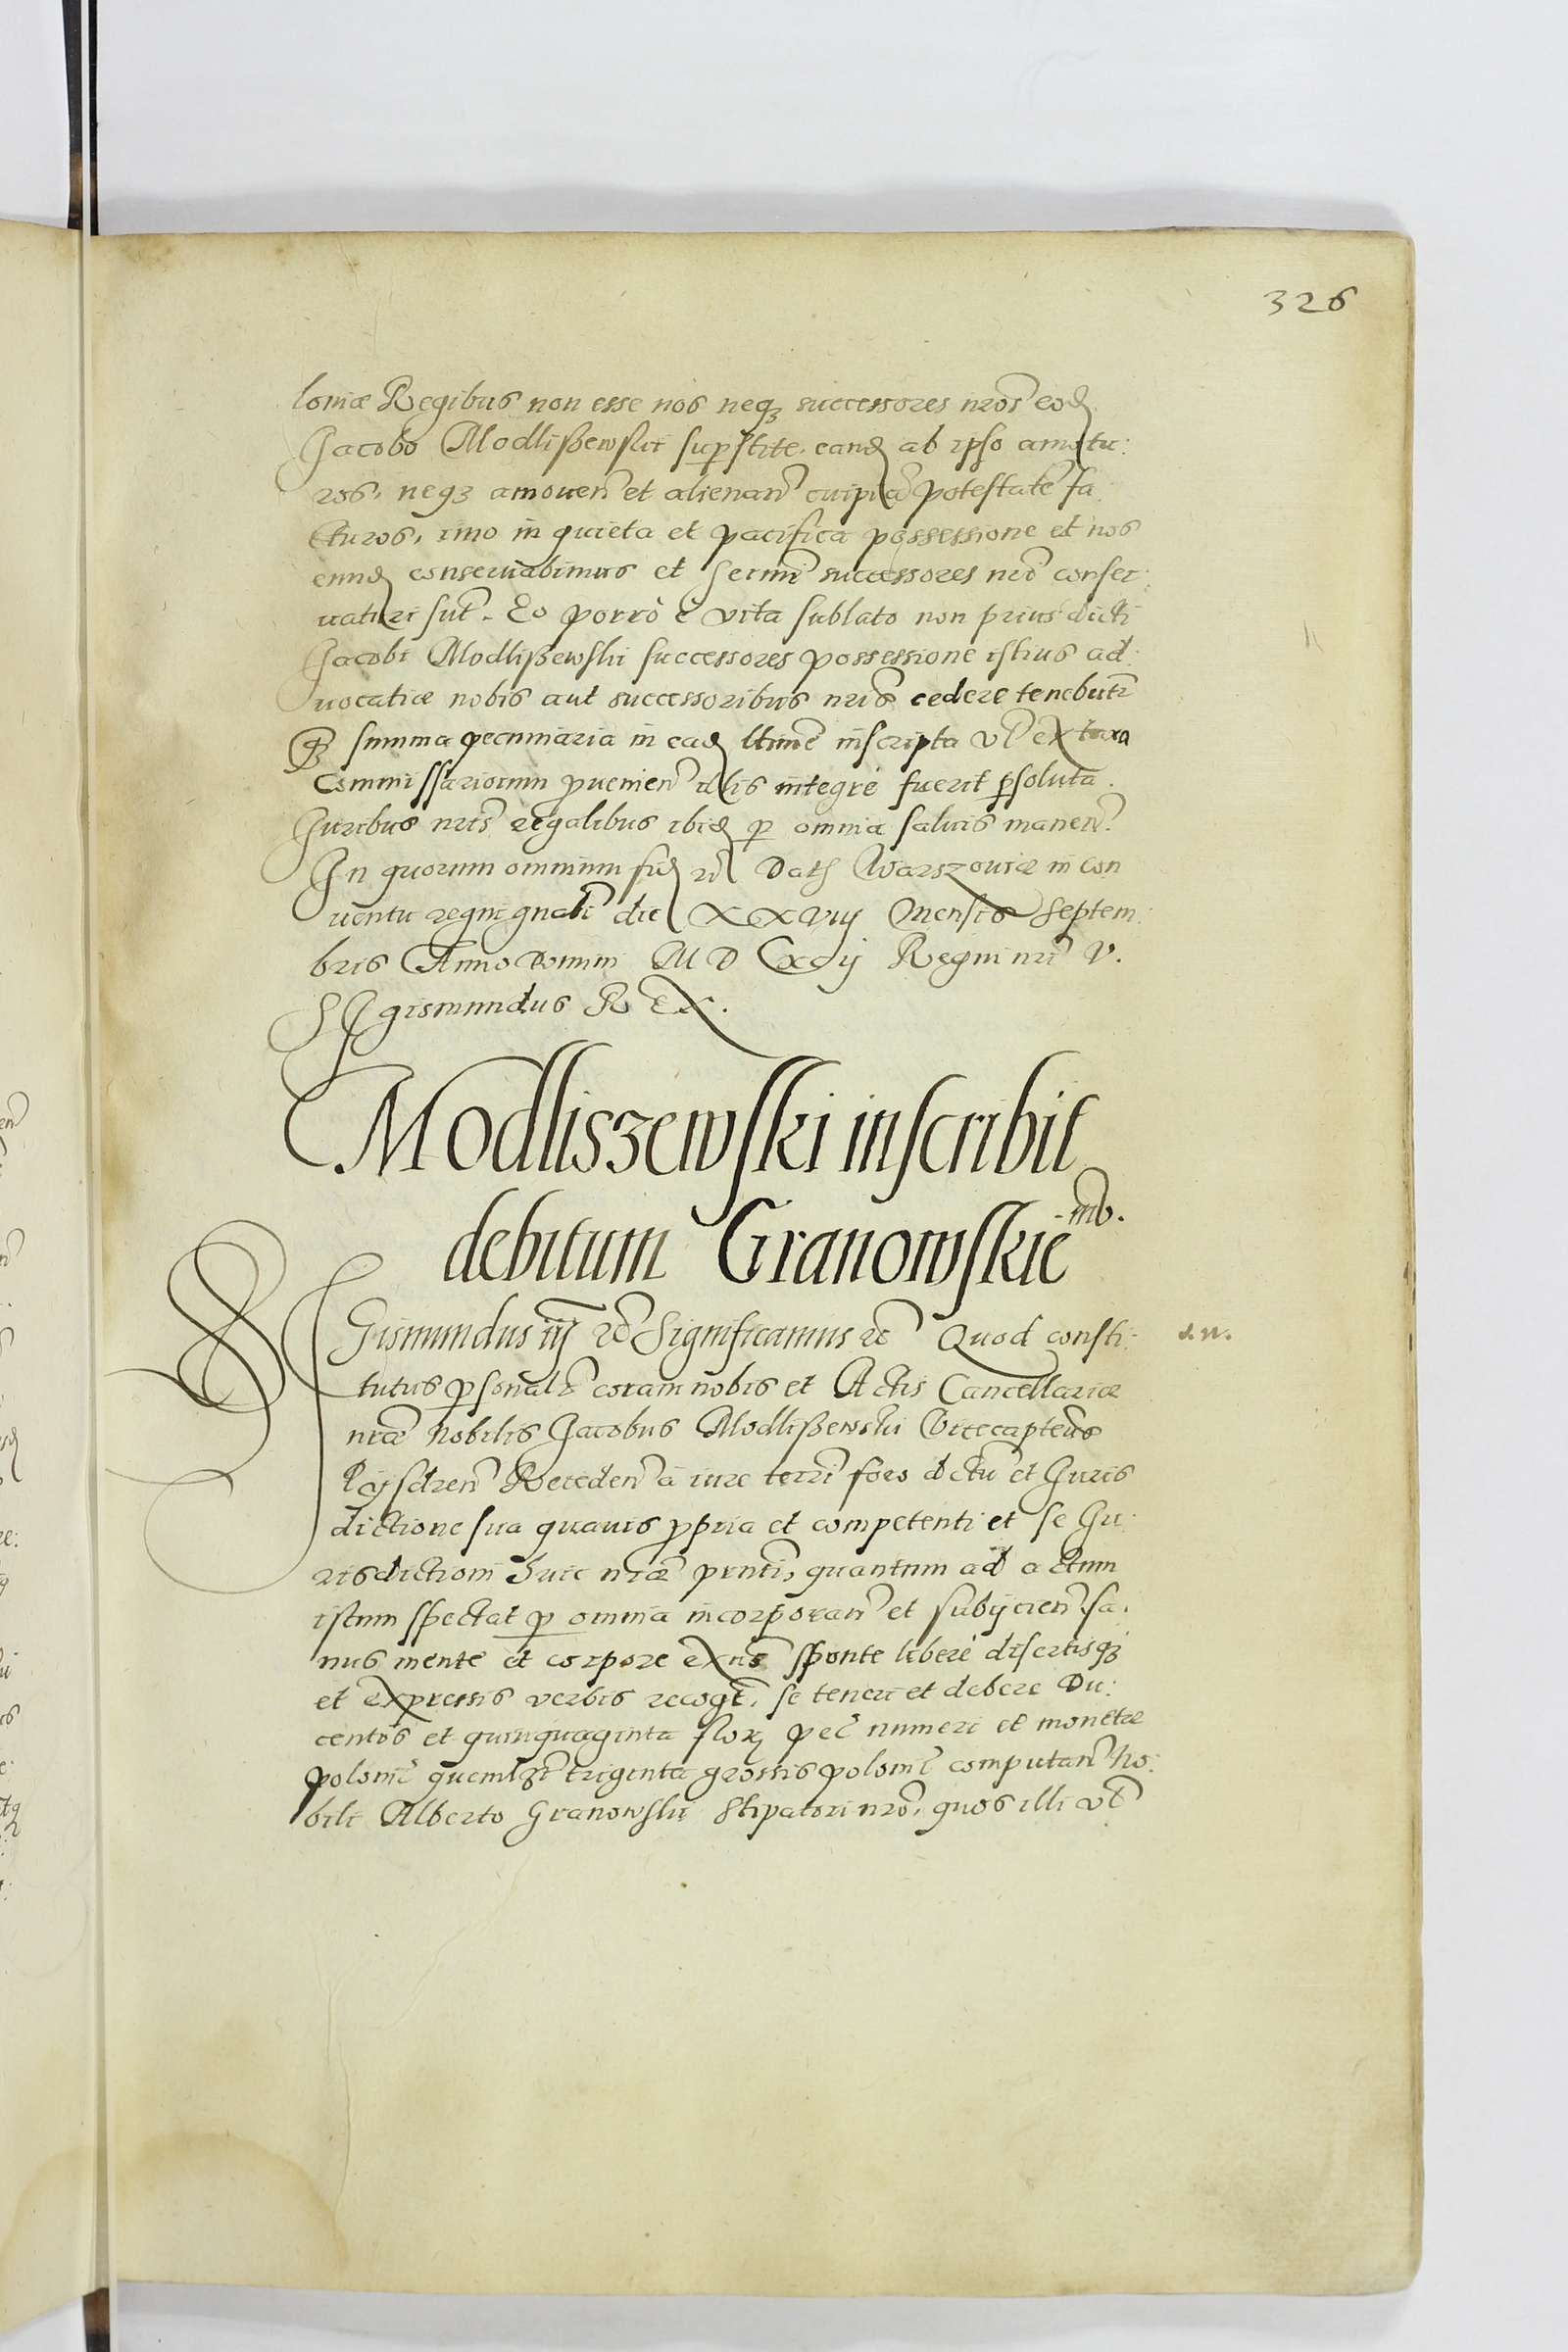 326
loniæ Regibus non esse nos neqȝ successores nros eod
Jacobo Modlißewski supstite, eand ab ipso amotu:
ros, neqȝ amouen et alienan cuipia potestate fa:
cturos, imo in quieta et pacifica possessione et nos
eund conseruabimus et sermi successores nri conser:
uaturi sut. Eo porrò è vita sublato non prius dicti
Jacobi Modlißewski successores possessione istius ad:
uocatiæ nobis aut successoribus nris cedere tenebutr
summa pecuniaria in ead ltime inscripta vl ex taxa
Commissariorum puenien illis integrè fuerit psoluta.
Juribus nris regalibus ibid p omnia saluis manen.
In quorum omnium fid rc Dat Warszouiæ in con
uentu regni gnali die XXViij Mensis Septem:
bris Anno Domini M D XCij Regni nri V.
SIgismundus REX.
Modliszewski inscribit
debitum Granowskiemu.
SIGismundus iij rc Significamus rc Quod consti:
d. n.
tutus psonalr coram nobis et Actis Cancellariæ
nræ Nobilis Jacobus Modlißewski Vicecaptneus
Receden à iure terri foro dctu et Juris
dictione sua quauis ppria et competenti et se Ju:
risdictioni huic nræ pnti, quantum ad actum
istum spectat p omnia incorporan et subijcien. sa:
nus mente et corpore exns sponte liberè disertisqȝ
et expressis verbis recogt, se teneri et debere Du:
centos et quinquaginta flor pec numeri et monetæ
polonic quemlibt triginta grossis polonic computan No:
bili Alberto Granowski Stipatori nro, quos illi vt